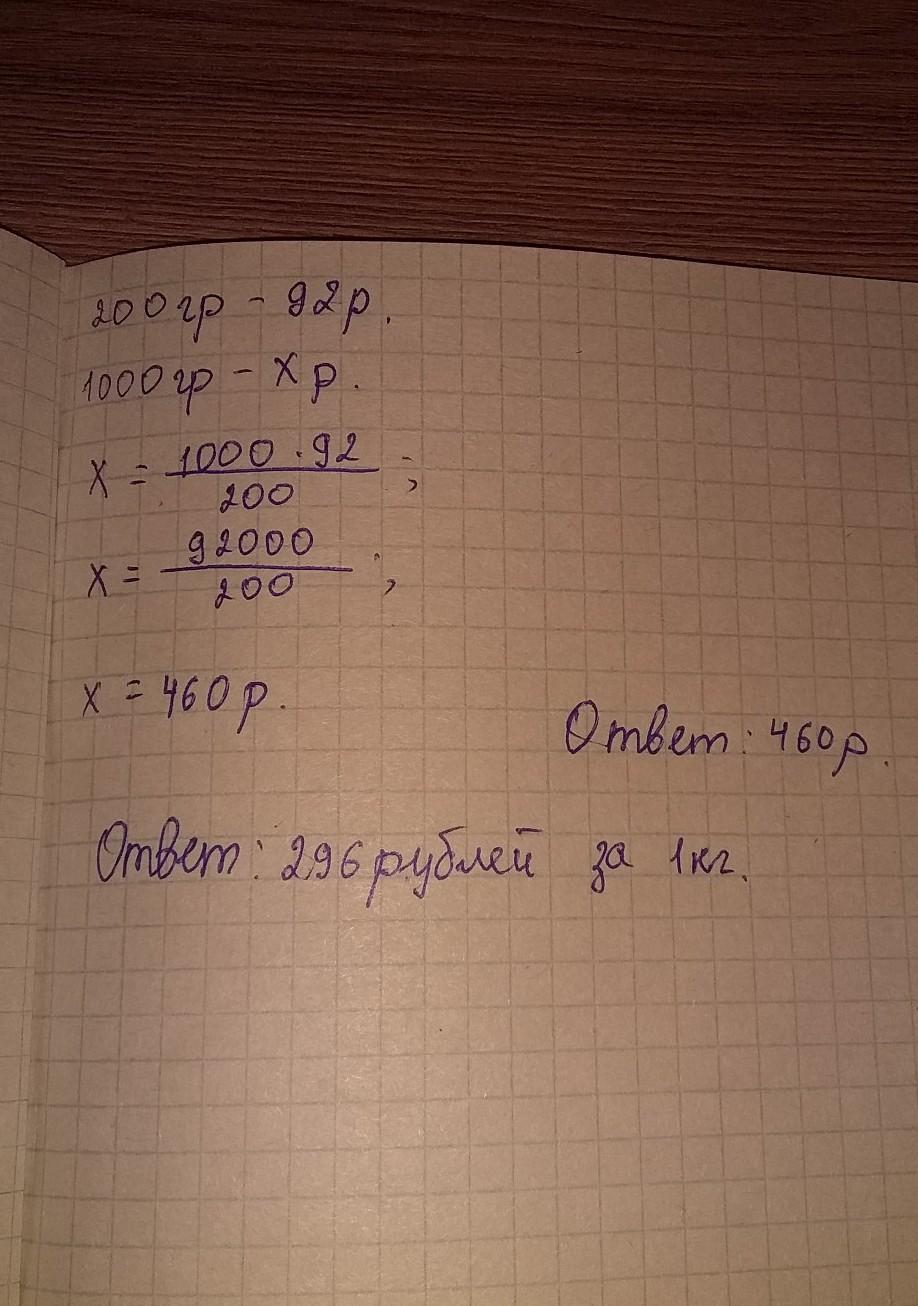 200гр - 92р.
1000гр - х р.
х = 1000 · 92 / 200 ;
х = 92000 / 200 ;
х = 460р.
Ответ: 460р.
Ответ: 296 рублей за 1кг.